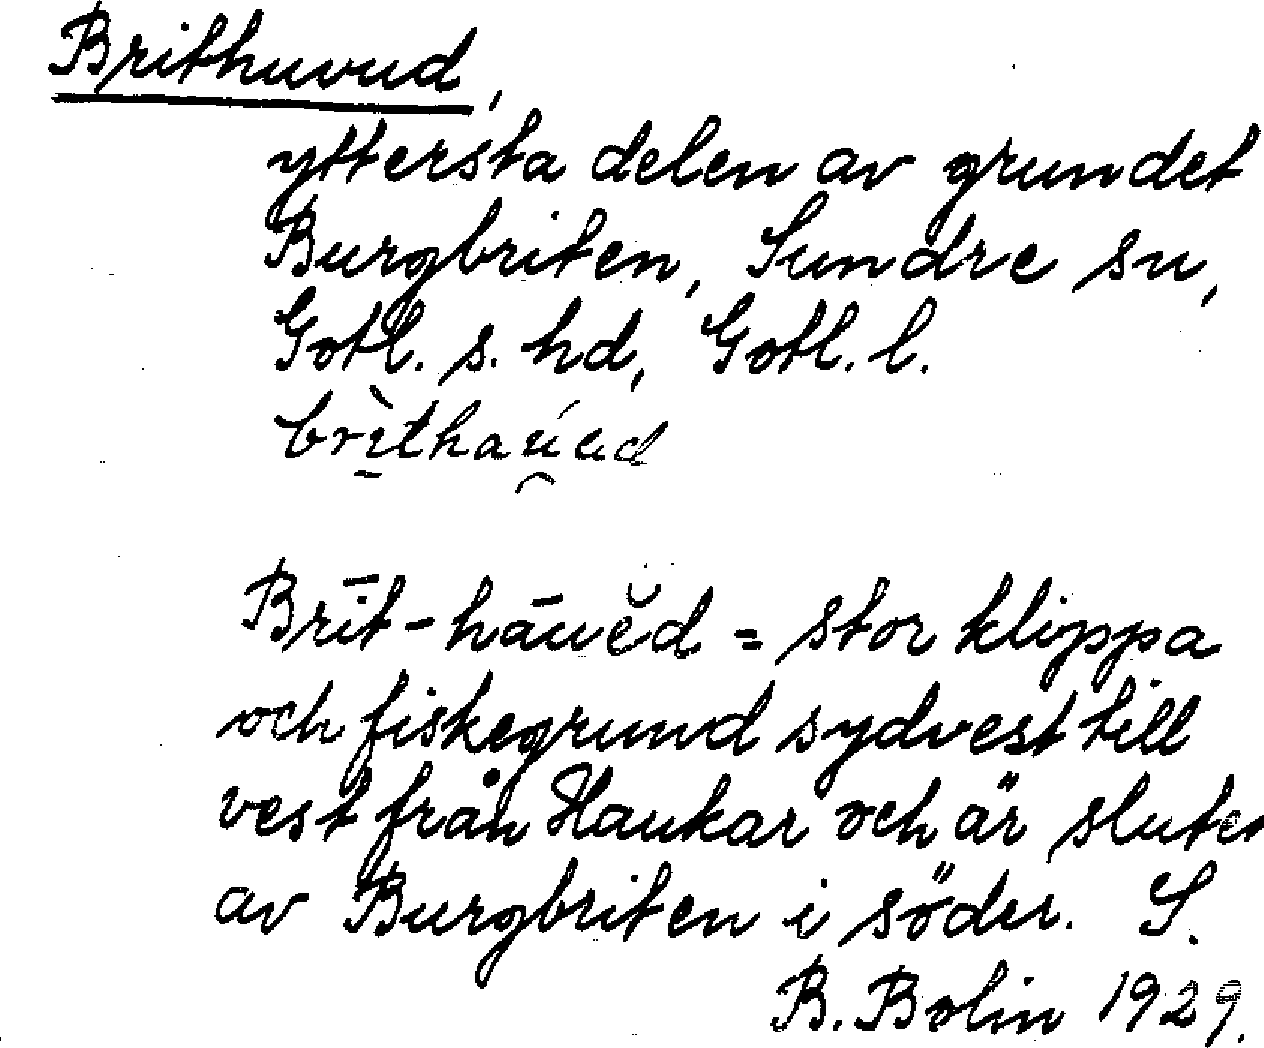 Brithuvud,
yttersta delen av grundet
Burgbriten, Sundre sn,
Gotl. s. hd, Gotl. l.
brìthau̯ud
Brīt-hāuĕd = stor klippa
och fiskegrund sydvest till
vest från Haukar och är sluten
av Burgbriten i söder. S.
B. Bolin 1929.